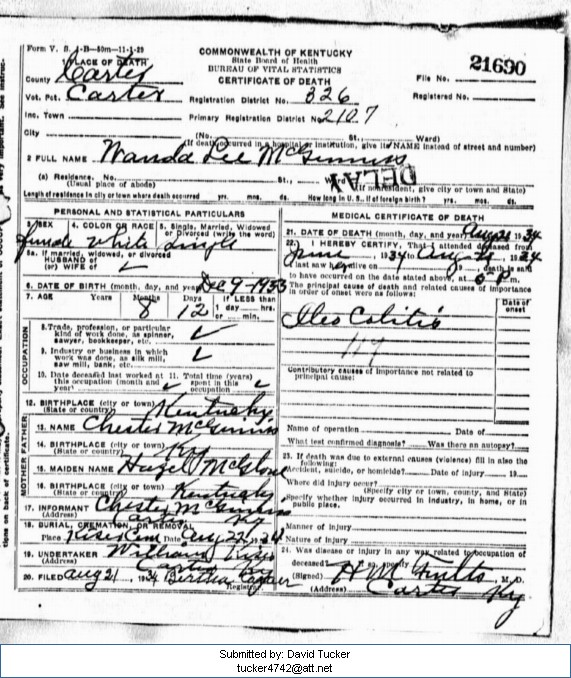 Form V. S. 1-B—50m—11-1-29
COMMONWEALTH OF KENTUCKY
State Board of Health
BUREAU OF VITAL STATISTICS
CERTIFICATE OF DEATH
21690
PLACE OF DEATH
County Carter
File No.
Vot. Pct. Carter
Registration District No. 326
Registered No.
Inc. Town
Primary Registration District No 2107
City (No. St. Ward)
(If death occurred in a hospital or institution, give its NAME instead of street and number)
2 FULL NAME Wanda Lee McGinniss
DELAY
(a) Residence, No. St., Ward
(Usual place of abode) (If nonresident, give city or town and State)
Length of residence in city or town where death occurred yrs. mos. ds. How long in U. S., if of foreign birth? yrs. mos. ds.
PERSONAL AND STATISTICAL PARTICULARS
3. SEX 4. COLOR OR RACE 5. Single, Married, Widowed
or Divorced (write the word)
female White Single
5a. If married, widowed, or divorced
HUSBAND of
(or) WIFE of
6. DATE OF BIRTH (month, day, and year) Dec 9-1933
7. AGE Years Months Days If LESS than
1 day hrs.
or min.
8 12
OCCUPATION
8. Trade, profession, or particular
kind of work done, as spinner,
sawyer, bookkeeper, etc.
9. Industry or business in which
work was done, as silk mill,
saw mill, bank, etc.
10. Date deceased last worked at 11. Total time (years)
this occupation (month and spent in this
year) occupation
12. BIRTHPLACE (city or town) Kentucky
(State or country)
FATHER
13. NAME Chester McGinniss
14. BIRTHPLACE (city or town) Ky
(State or country)
MOTHER
15. MAIDEN NAME Hazel McGlone
16. BIRTHPLACE (city or town) Kentucky
(State or country)
17. INFORMANT Chester McGinniss
(Address) Ky
18. BURIAL, CREMATION, OR REMOVAL
Place Kiser Cem Date Aug 22, 1934
19. UNDERTAKER William
(Address) Carter Ky
20. FILED Aug 21, 1934 Bertha
Registrar.
MEDICAL CERTIFICATE OF DEATH
21. DATE OF DEATH (month, day, and year) Aug 21 1934
22. I HEREBY CERTIFY, That I attended deceased from
June, 1934 to Aug 21, 1934
I last saw her alive on, death is said
to have occurred on the date stated above, at P m.
The principal cause of death and related causes of importance
in order of onset were as follows:
Date of
onset
Ileo Colitis
119
Contributory causes of importance not related to
principal cause:
Name of operation Date of
What test confirmed diagnosis? Was there an autopsy?
23. If death was due to external causes (violence) fill in also the
following:
Accident, suicide, or homicide? Date of injury 19
Where did injury occur?
(Specify city or town, county, and State)
Specify whether injury occurred in industry, in home, or in
public place.
Manner of injury
Nature of injury
24. Was disease or injury in any way related to occupation of
deceased? If so, specify
(Signed) H M Fults, M. D.
(Address) Carter Ky
Submitted by: David Tucker
tucker4742@att.net